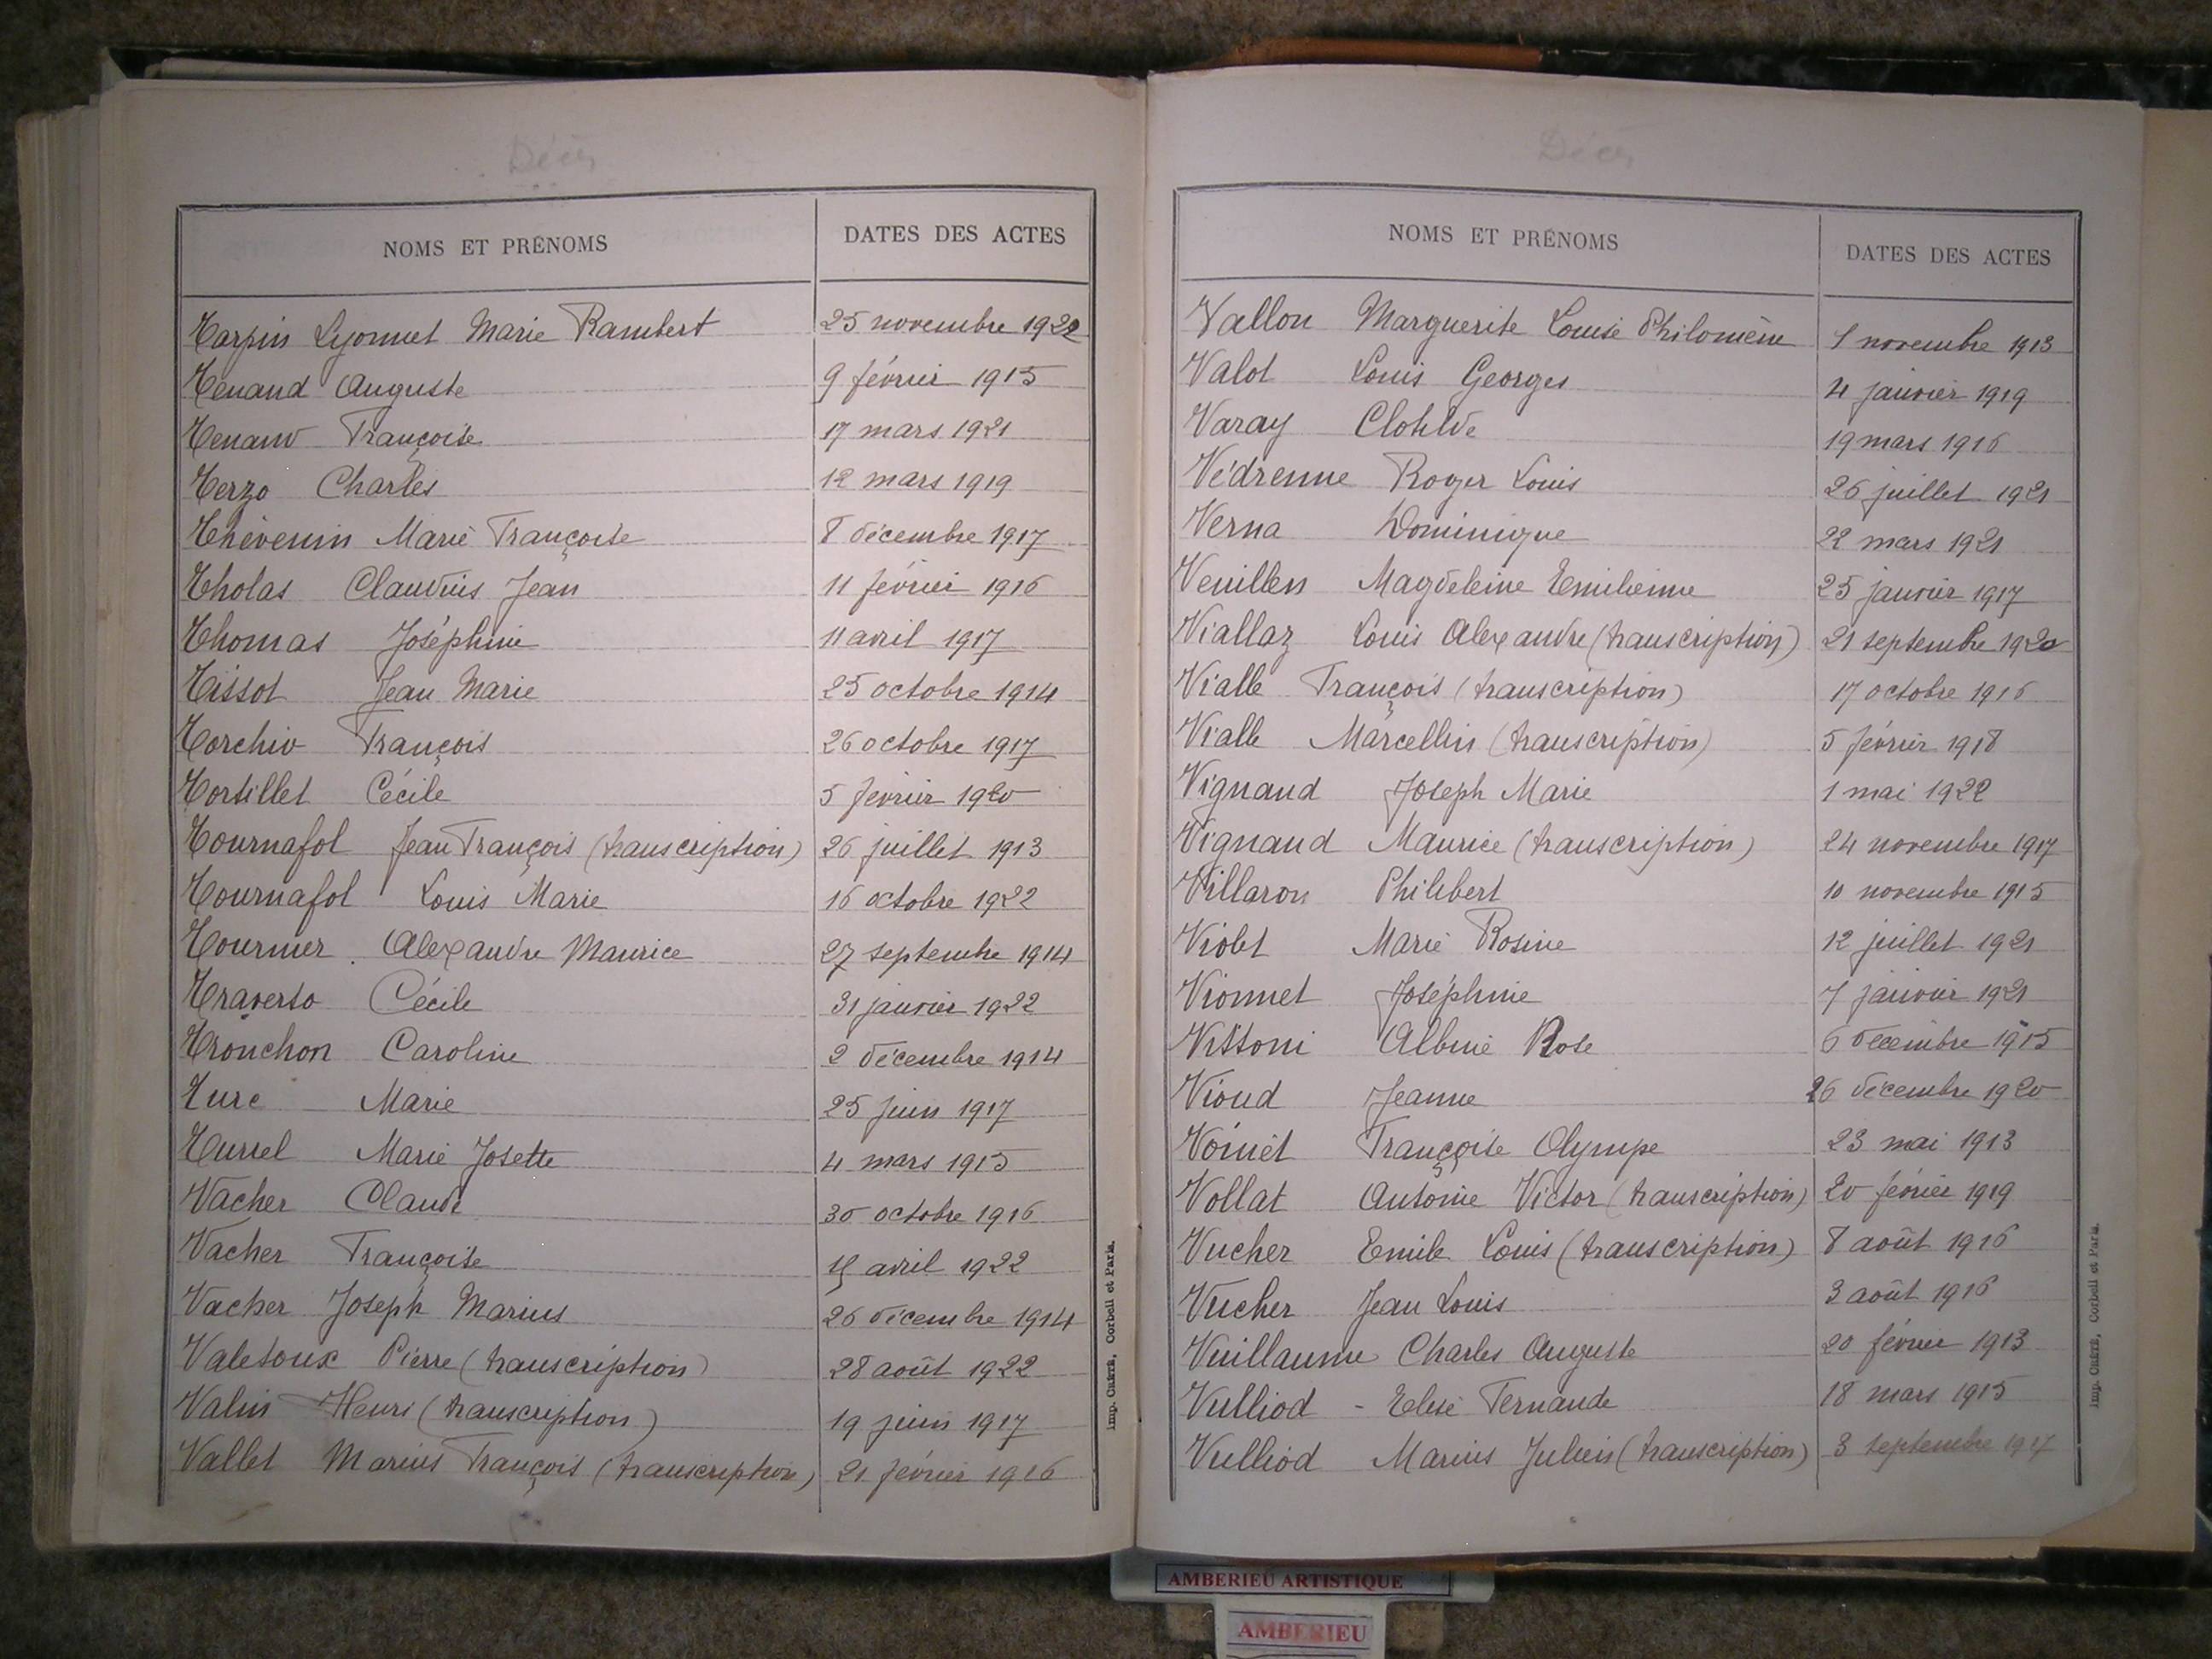 Décès
NOMS ET PRÉNOMS
DATES DES ACTES
Tarpin Lyonnet Marie Rambert 25 novembre 1922
Tenand Auguste 9 février 1915
Tenand Françoise 17 mars 1921
Terzo Charles 12 mars 1919
Thévenin Marie Françoise 8 décembre 1917
Tholas Claudius Jean 11 février 1916
Thomas Joséphine 11 avril 1917
Tissot Jean Marie 25 octobre 1914
Torchio François 26 octobre 1917
Tortillet Cécile 5 février 1920
Tournafol Jean François (transcription) 26 juillet 1913
Tournafol Louis Marie 16 octobre 1922
Tournier Alexandre Maurice 27 septembre 1914
Traverso Cécile 31 janvier 1922
Tronchon Caroline 2 décembre 1914
Turc Marie 25 juin 1917
Turrel Marie Josette 4 mars 1915
Vacher Claude 30 octobre 1916
Vacher Françoise avril 1922
Vacher Joseph Marius 26 décembre 1914
Valetoux Pierre (transcription) 28 août 1922
Valin Henri (transcription) 19 juin 1917
Vallet Marius François (transcription) 21 février 1916
Imp. Crété, Corbeil et Paris.
Décès
NOMS ET PRÉNOMS
DATES DES ACTES
Vallon Marguerite Louise Philomène 1 novembre 1913
Valot Louis Georges 4 janvier 1919
Varay Clotilde 19 mars 1916
Védrenne Roger Louis 26 juillet 1921
Verna Dominique 22 mars 1921
Veuillen Magdeleine Emilienne 25 janvier 1917
Viallaz Louis Alexandre (transcription) 21 septembre 1920
Vialle François (transcription) 17 octobre 1916
Vialle Marcellin (transcription) 5 février 1918
Vignand Joseph Marie 1 mai 1922
Vignand Maurice (transcription) 24 novembre 1917
Villaron Philibert 10 novembre 1915
Violet Marie Rosine 12 juillet 1921
Vionnet Joséphine 7 janvier 1921
Vittoni Albine Rose 6 décembre 1915
Vioud Jeanne 26 décembre 1920
Voinet Françoise Olympe 23 mai 1913
Vollat Antoine Victor (transcription) 20 février 1919
Vucher Emile Louis (transcription) 8 août 1916
Vucher Jean Louis 3 août 1916
Vuillaume Charles Auguste 20 février 1913
Vulliod - Elise Fernande 18 mars 1915
Vulliod Marius Julien (transcription) 3 septembre 1917
Imp. Crété, Corbeil et Paris.
AMBERIEU ARTISTIQUE
AMBERIEU